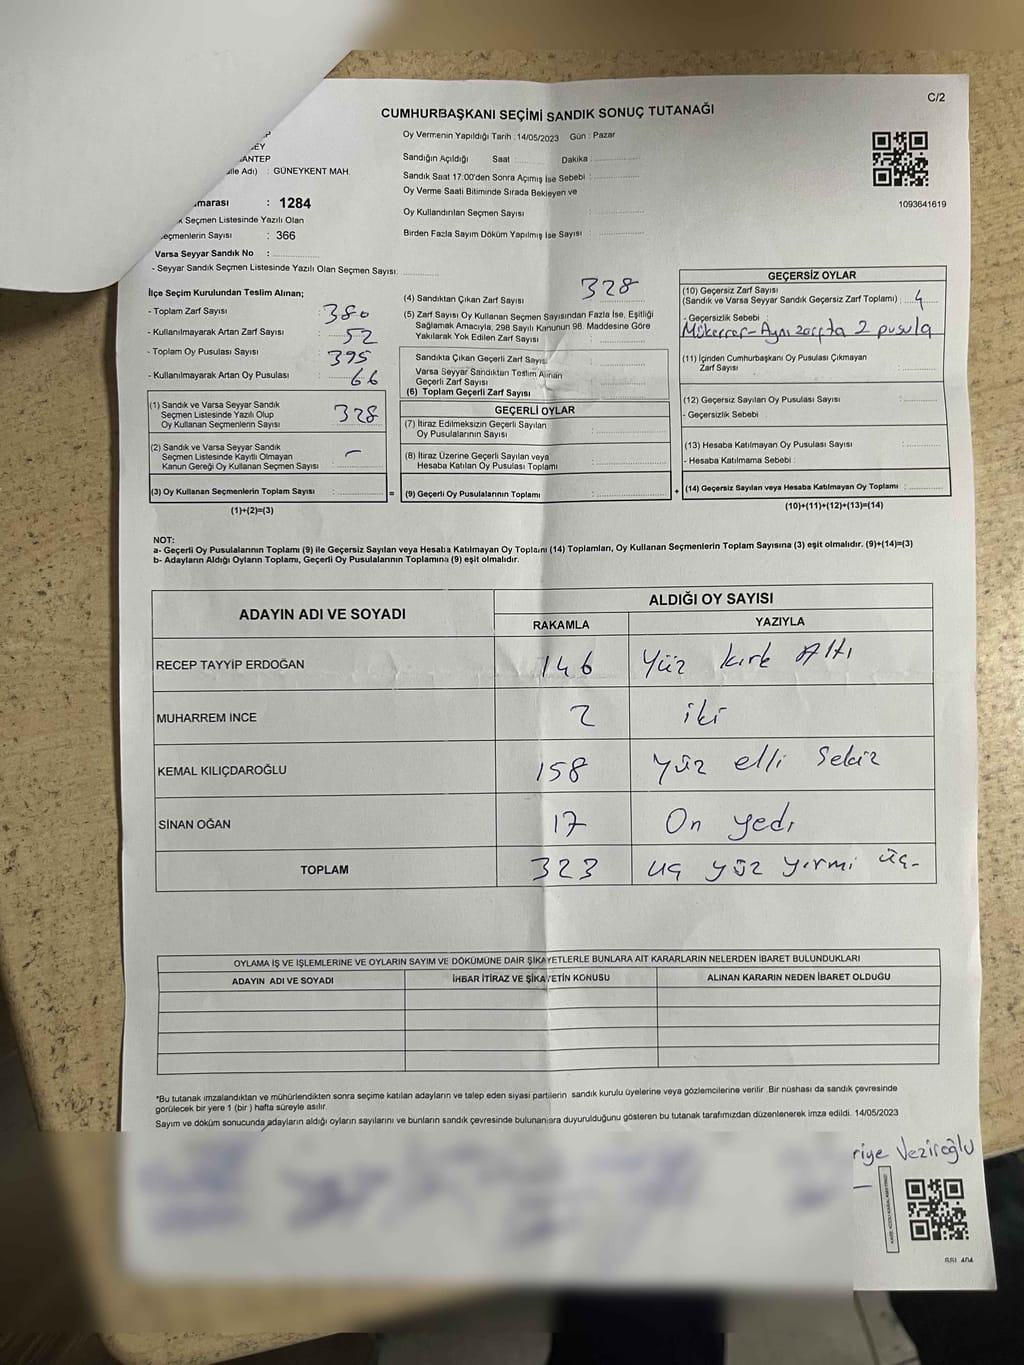 C/2
CUMHURBAŞKANI SEÇİMİ SANDIK SONUÇ TUTANAĞI
Oy Vermenin Yapıldığı Tarih : 14/05/2023 Gün : Pazar
Sandığın Açıldığı Saat : Dakika :
: GÜNEYKENT MAH.
Sandık Saat 17:00'den Sonra Açımış İse Sebebi :
Oy Verme Saati Bitiminde Sırada Bekleyen ve
Oy Kullandırılan Seçmen Sayısı :
Birden Fazla Sayım Döküm Yapılmış İse Sayısı :
1093641619
: 1284
Seçmen Listesinde Yazılı Olan
Sayısı : 366
Varsa Seyyar Sandık No :
- Seyyar Sandık Seçmen Listesinde Yazılı Olan Seçmen Sayısı:
İlçe Seçim Kurulundan Teslim Alınan;
- Toplam Zarf Sayısı : 380
- Kullanılmayarak Artan Zarf Sayısı : 52
- Toplam Oy Pusulası Sayısı : 395
- Kullanılmayarak Artan Oy Pusulası : 66
(1) Sandık ve Varsa Seyyar Sandık
Seçmen Listesinde Yazılı Olup
Oy Kullanan Seçmenlerin Sayısı : 328
(2) Sandık ve Varsa Seyyar Sandık
Seçmen Listesinde Kayıtlı Olmayan
Kanun Gereği Oy Kullanan Seçmen Sayısı : -
(3) Oy Kullanan Seçmenlerin Toplam Sayısı : =
(1)+(2)=(3)
(4) Sandıktan Çıkan Zarf Sayısı : 328
(5) Zarf Sayısı Oy Kullanan Seçmen Sayısından Fazla İse, Eşitliği
Sağlamak Amacıyla, 298 Sayılı Kanunun 98. Maddesine Göre
Yakılarak Yok Edilen Zarf Sayısı :
Sandıkta Çıkan Geçerli Zarf Sayısı :
Varsa Seyyar Sandıktan Teslim Alınan
Geçerli Zarf Sayısı :
(6) Toplam Geçerli Zarf Sayısı
GEÇERLİ OYLAR
(7) İtiraz Edilmeksizin Geçerli Sayılan
Oy Pusulalarının Sayısı :
(8) İtiraz Üzerine Geçerli Sayılan veya
Hesaba Katılan Oy Pusulası Toplamı :
(9) Geçerli Oy Pusulalarının Toplamı : +
GEÇERSİZ OYLAR
(10) Geçersiz Zarf Sayısı
(Sandık ve Varsa Seyyar Sandık Geçersiz Zarf Toplamı) : 4
- Geçersizlik Sebebi :
Mükerrer - Aynı zarfta 2 pusula
(11) İçinden Cumhurbaşkanı Oy Pusulası Çıkmayan
Zarf Sayısı :
(12) Geçersiz Sayılan Oy Pusulası Sayısı :
- Geçersizlik Sebebi :
(13) Hesaba Katılmayan Oy Pusulası Sayısı :
- Hesaba Katılmama Sebebi :
(14) Geçersiz Sayılan veya Hesaba Katılmayan Oy Toplamı :
(10)+(11)+(12)+(13)=(14)
NOT:
a- Geçerli Oy Pusulalarının Toplamı (9) ile Geçersiz Sayılan veya Hesaba Katılmayan Oy Toplamı (14) Toplamları, Oy Kullanan Seçmenlerin Toplam Sayısına (3) eşit olmalıdır. (9)+(14)=(3)
b- Adayların Aldığı Oyların Toplamı, Geçerli Oy Pusulalarının Toplamına (9) eşit olmalıdır.
ADAYIN ADI VE SOYADI ALDIĞI OY SAYISI
RAKAMLA YAZIYLA
RECEP TAYYİP ERDOĞAN 146 Yüz kırk Altı
MUHARREM İNCE 2 iki
KEMAL KILIÇDAROĞLU 158 yüz elli Sekiz
SİNAN OĞAN 17 On yedi
TOPLAM 323 üç yüz yirmi üç-
OYLAMA İŞ VE İŞLEMLERİNE VE OYLARIN SAYIM VE DÖKÜMÜNE DAİR ŞİKAYETLERLE BUNLARA AİT KARARLARIN NELERDEN İBARET BULUNDUKLARI
ADAYIN ADI VE SOYADI İHBAR İTİRAZ VE ŞİKAYETİN KONUSU ALINAN KARARIN NEDEN İBARET OLDUĞU
*Bu tutanak imzalandıktan ve mühürlendikten sonra seçime katılan adayların ve talep eden siyasi partilerin sandık kurulu üyelerine veya gözlemcilerine verilir. Bir nüshası da sandık çevresinde
görülecek bir yere 1 (bir ) hafta süreyle asılır.
Sayım ve döküm sonucunda adayların aldığı oyların sayılarını ve bunların sandık çevresinde bulunanlara duyurulduğunu gösteren bu tutanak tarafımızdan düzenlenerek imza edildi. 14/05/2023
riye Veziroğlu